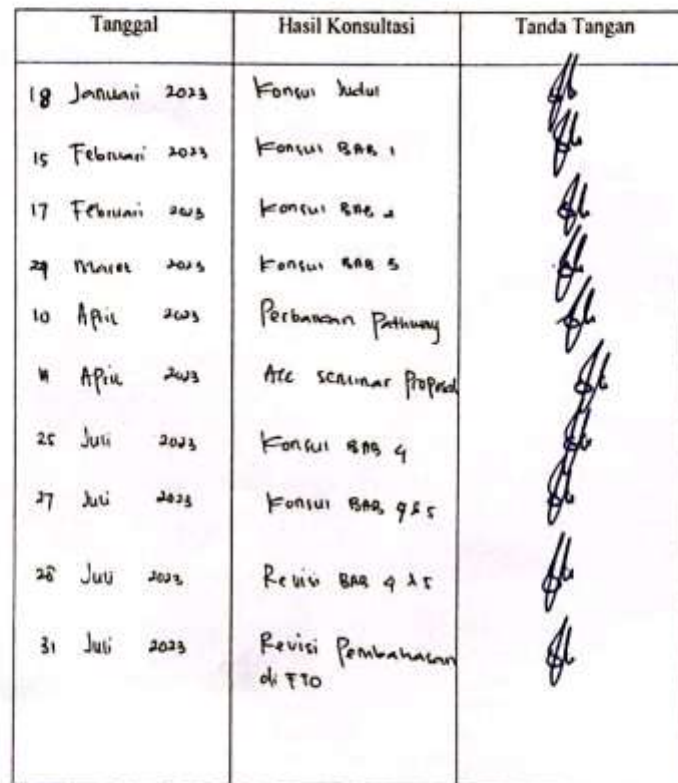 Tanggal Hasil Konsultasi Tanda Tangan
18 Januari 2023 Konsul Judul
15 Februari 2023 Konsul BAB 1
17 Februari 2023 Konsul BAB 2
29 Maret 2023 Konsul BAB 3
10 April 2023 Perbaikan Pathway
April 2023 Acc seminar Proposal
25 Juli 2023 Konsul BAB 4
27 Juli 2023 Konsul BAB 4 & 5
28 Juli 2023 Revisi BAB 4 & 5
31 Juli 2023 Revisi Pembahasan
di